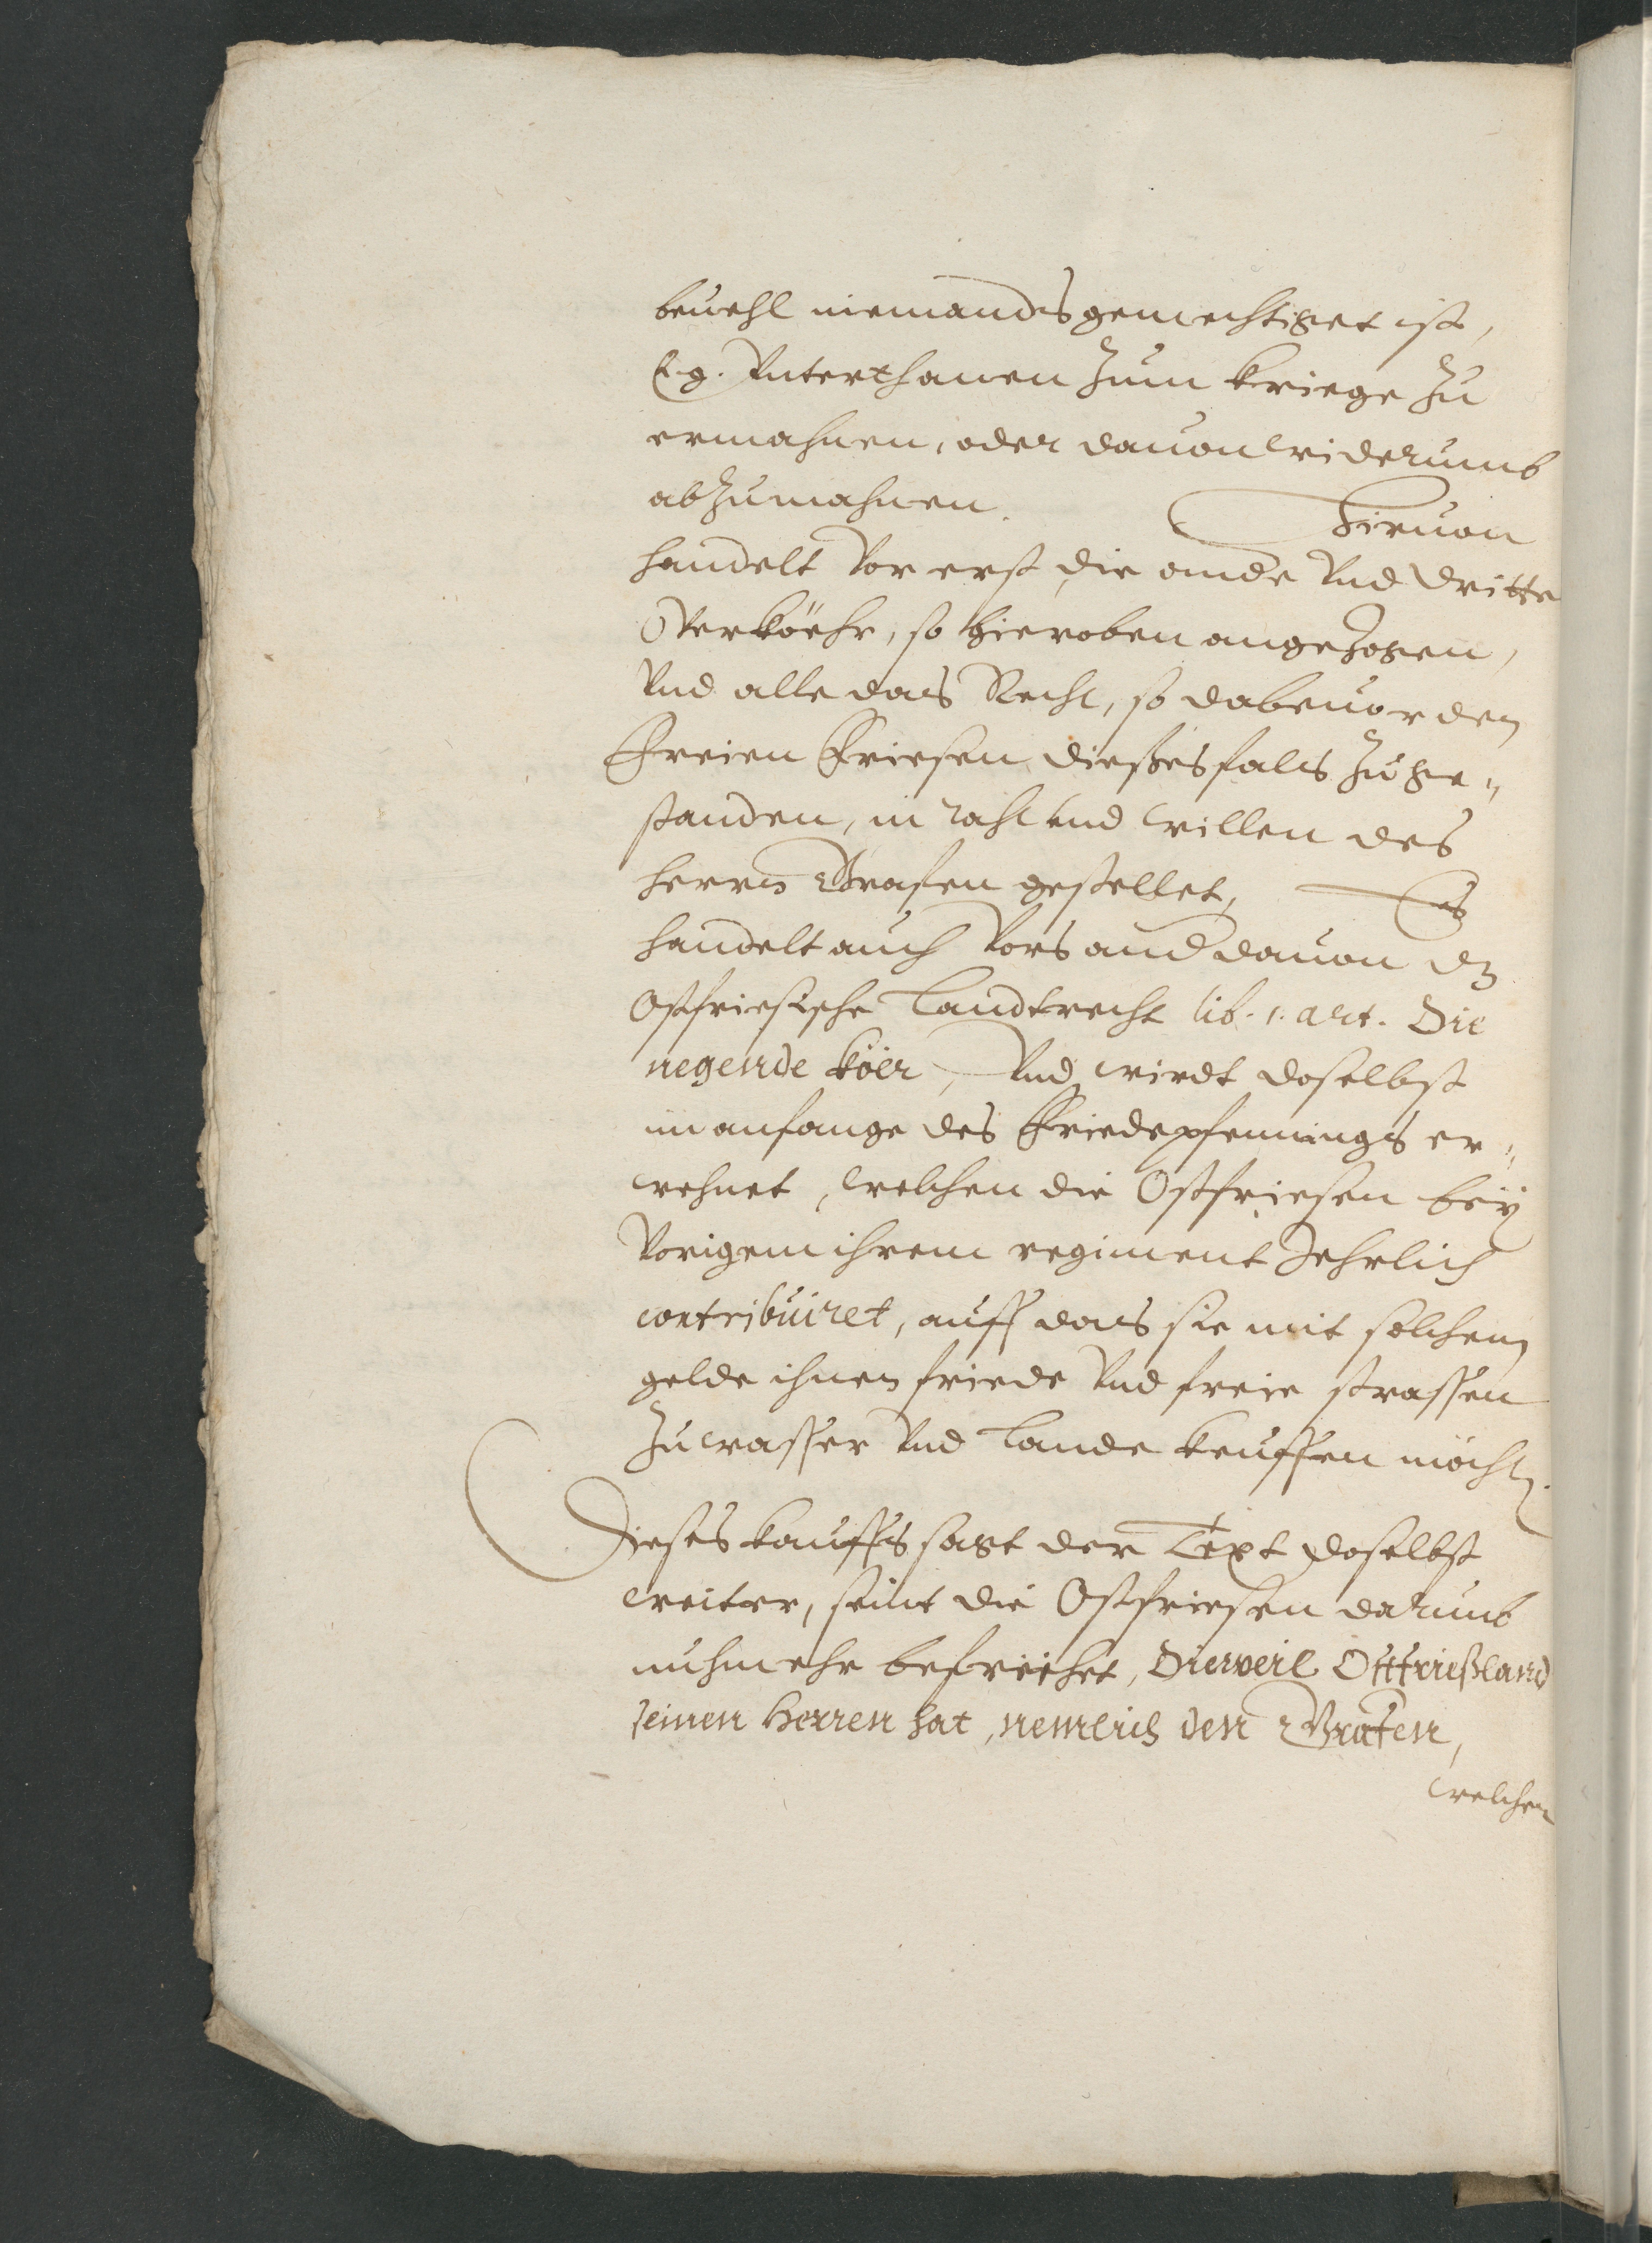 beuehl niemands gemechtiget ist,
E. g. Vnterthanen zum kriege zu
ermahnen, oder dauon widerumb
abzumahnen. Hieruon
handelt Vor erst die ander Vnd dritte
Overköehr, so hieroben angezogen,
Vnd alle das Recht, so dabeuor den
Freien Friesen dießes fals zu ge„
standen, in raht vnd willen des
herrn Grafen gestellet, Es
handelt auch Vors and dauon dz
Ostfriesische Landtrecht lib. 1. art. Die
negende köer, Vnd wirdt doselbst
im anfange des Friedepfennings er„
wehnet, welchen die Ostfriesen beÿ
Vorigem ihrem regiment Jehrlich
contribuiret, auff das sie mit solchem
gelde ihnen friede Vnd freie strassen
zu wasser Vnd Lande keuffen möchten.
Dieses kauffs sagt der Text doselbst
weiter, seint die Ostfriesen darumb
nuhmehr befreihet, Dieweil Ostfrießland
seinen Herren hat, nemlich den Grafen,
welchen